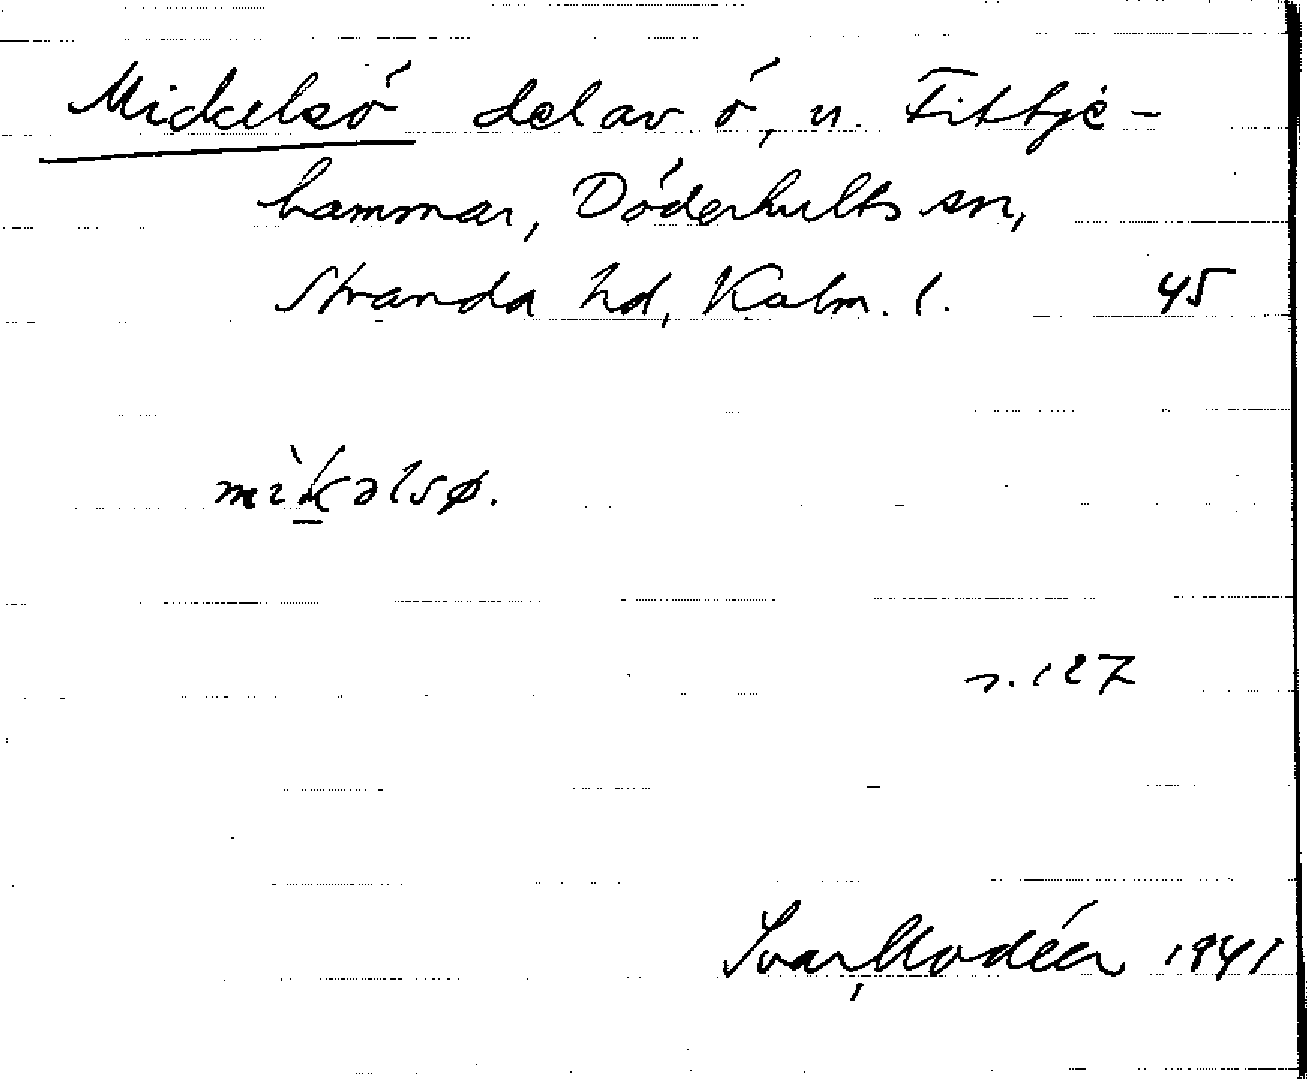 Mickelsö del av ö, u. Fittje-
hammar, Döderhults sn,
Stranda hd, Kalm. l. 45
mìkəlsø.
s. 127
Ivar Modéer 1941